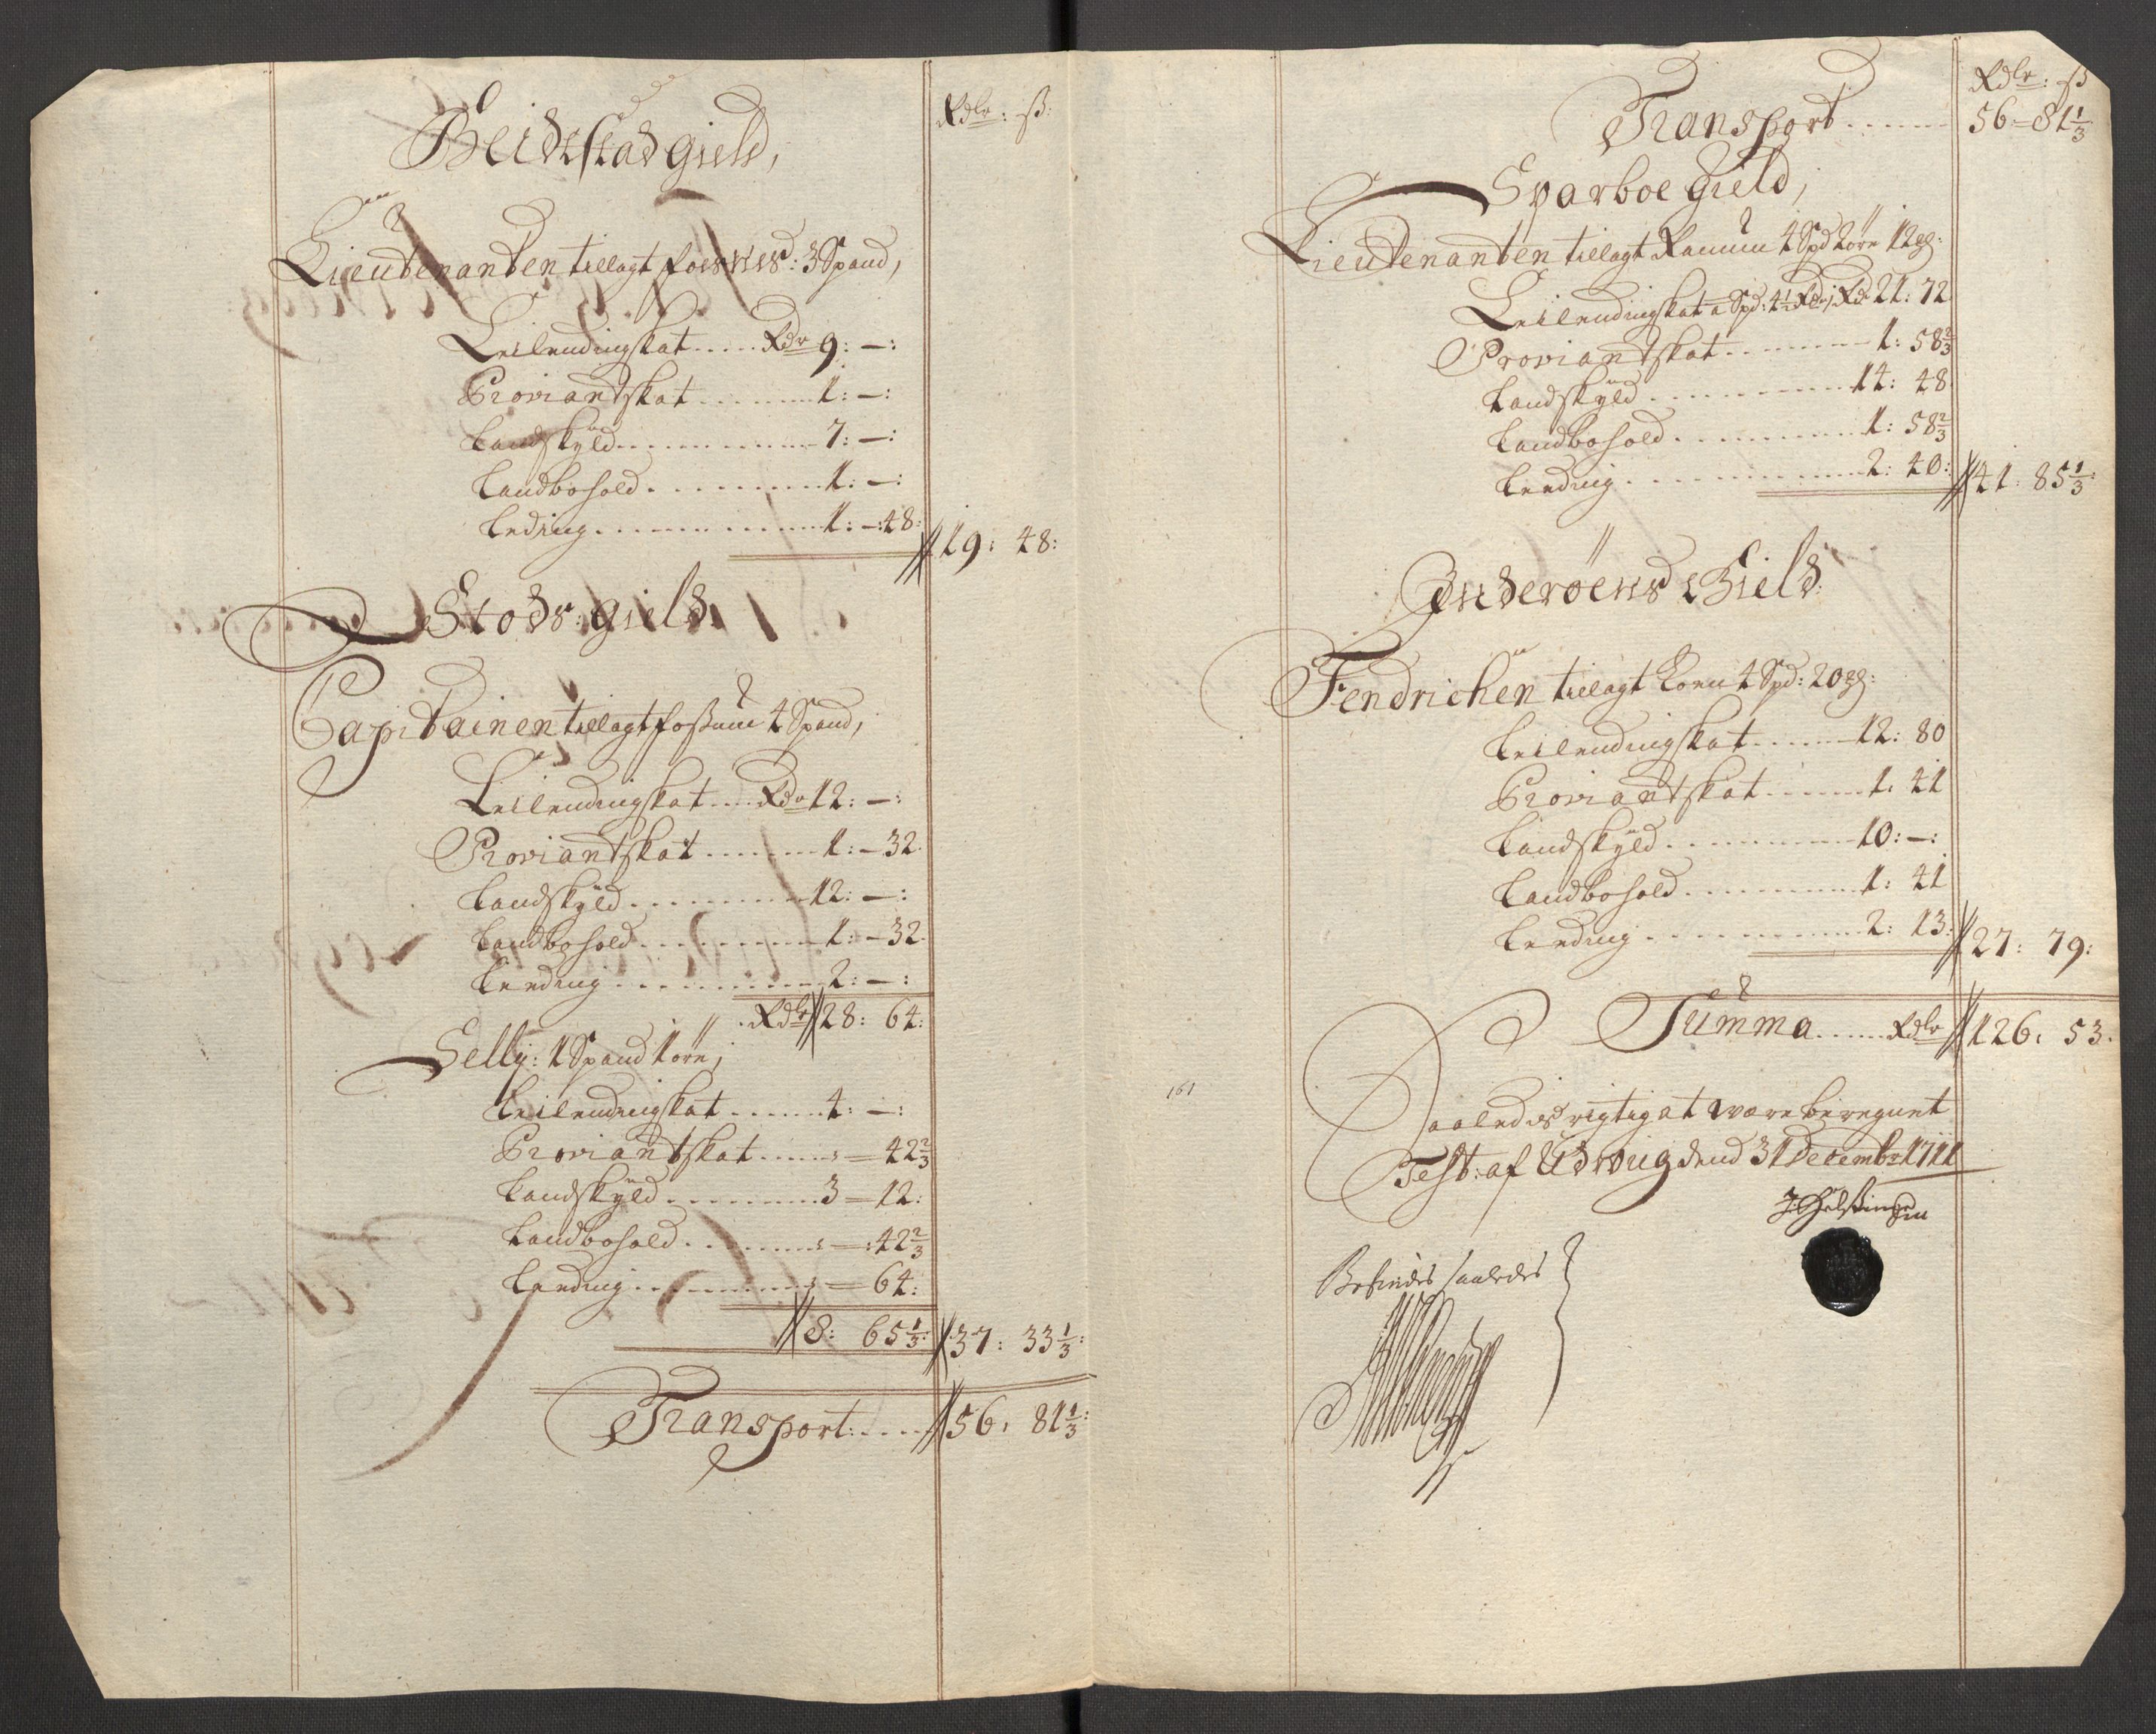 Rdlr: ß:
Beidstad gield,
Lieutenanten tillagt foesnes: 3 Spand,
Leilendingskat ..... Rdr 9: –:
Proviandtskat ........ 1: –:
Landskyld ............ 7: –:
Landbohold ......... 1: –:
Leding ............... 1: –: 48:
19: 48:
Stods: gield.
Capitainen tillagt foßum 4 Spand,
Leilendingskat ... Rdr 12: –:
Proviandtskat ....... 1: – 32.
Landskyld ......... 12: –:
Landbohold ......... 1: – 32.
Leeding ........... 2: –:
Rdlr 28: 64:
Selly: 1 Spand 1 öre,
Leilendingskat ...... 4: –:
Proviandtskat ..... : = 42 2/3
Landskyld ......... 3 = 12:
Landbohold ........ : = : 42 2/3
Leeding .......... : = 64:
8: 65 1/3: 37: 33 1/3:
Transport: .... 56: 81 1/3:
Rdlr: ß
Transport ...... 56 = 81 1/3
Sparboe Gield,
Lieutenanten tillagt Ramum 4 Spd 2 öre 12 gl:
Leilendingskat a Spd: 4 1/2 Rdr, Rdr 21: 72
Proviandtskat ........ 1: 58 2/3
Landskyld .......... 14: 48
Landbohold .......... 1: 58 2/3
Leeding ............ 2: 40:
41: 85 1/3:
Inderöens Gield:
Fendrichen tillagt Korn 4 Spd: 20 gl:
Leilendingskat ...... 12: 80
Proviandtskat ...... 1: 41
Landskyld .......... 10: –:
Landbohold ......... 1: 41
Leeding ........... 2: 13:
27: 79:
Summa ..... Rdlr 126: 53.
161
Saaledis rigtig at være beregnet
Test: af Udvug dend 31 Decembr 1711
Befindes saaledes